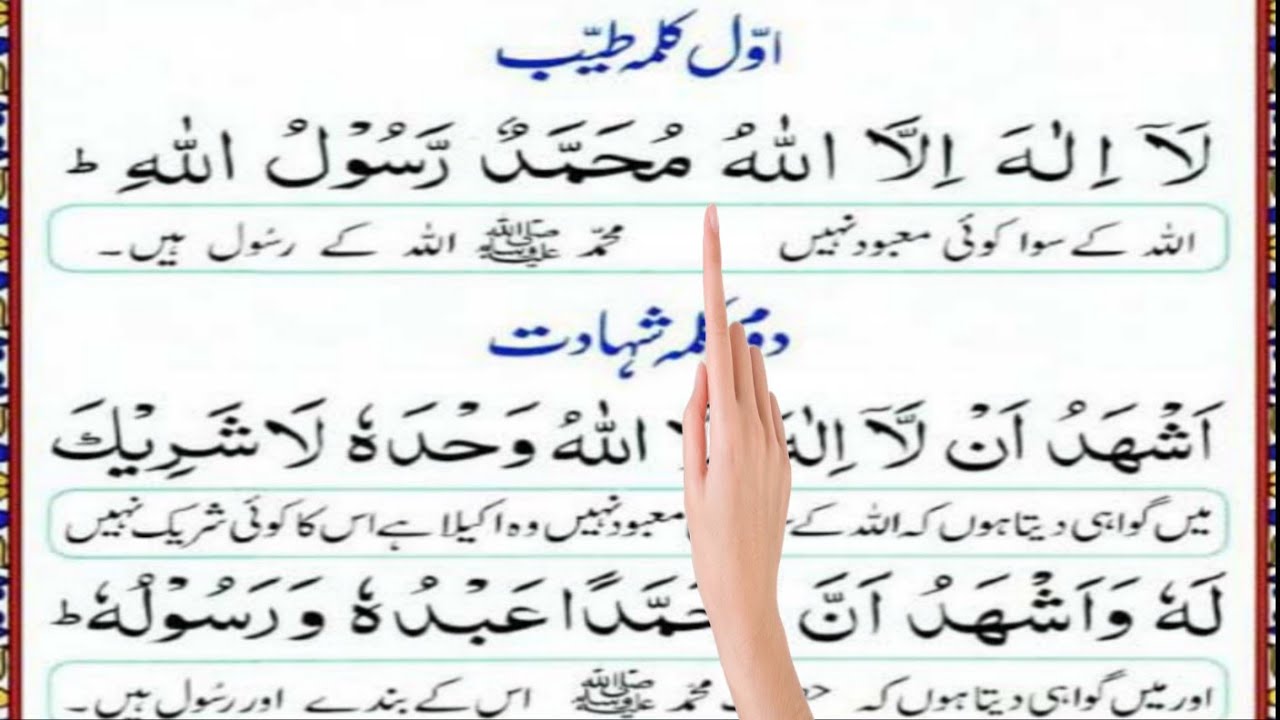 اوّل کلمہ طیّب
لَآ اِلٰهَ اِلَّا اللّٰهُ مُحَمَّدٌ رَّسُوْلُ اللّٰهِ ؕ
اللہ کے سوا کوئی معبود نہیں محمّد ﷺ اللہ کے رسُول ہیں۔
شہادت
اَشْهَدُ اَنْ لَّآ اِلٰهَ اللّٰهُ وَحْدَهٗ لَا شَرِيْكَ
میں گواہی دیتا ہوں کہ اللہ کے معبود نہیں وہ اکیلا ہے اس کا کوئی شریک نہیں
لَهٗ وَاَشْهَدُ اَنَّ عَبْدُهٗ وَرَسُوْلُهٗ ؕ
اور میں گواہی دیتا ہوں کہ محمّد ﷺ اس کے بندے اور رسُول ہیں۔